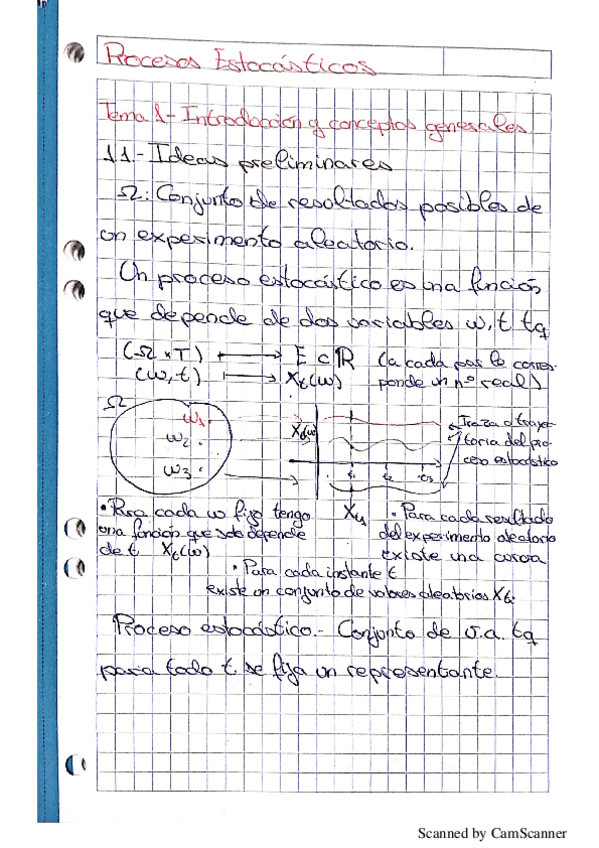 Procesos Estocásticos
Tema 1.- Introducción y conceptos generales
1.1.- Ideas preliminares
Ω: Conjunto de resultados posibles de
un experimento aleatorio.
Un proceso estocástico es una función
que depende de dos variables w,t tq
(Ω x T) → E ⊂ ℝ (a cada par le corres-
(w,t) → Xt(w) ponde un nº real)
Ω
w1.
w2.
w3.
Xt(w)
t1 t2 t3
Traza o traye-
toria del pro-
ceso estocástico
• Para cada w fijo tengo
una función que solo depende
de t Xt(w)
Xt1
• Para cada resultado
del experimento aleatorio
existe una curva
• Para cada instante t
existe un conjunto de valores aleatorios Xti
Proceso estocástico.- Conjunto de v.a. tq
para todo t se fija un representante.
Scanned by CamScanner